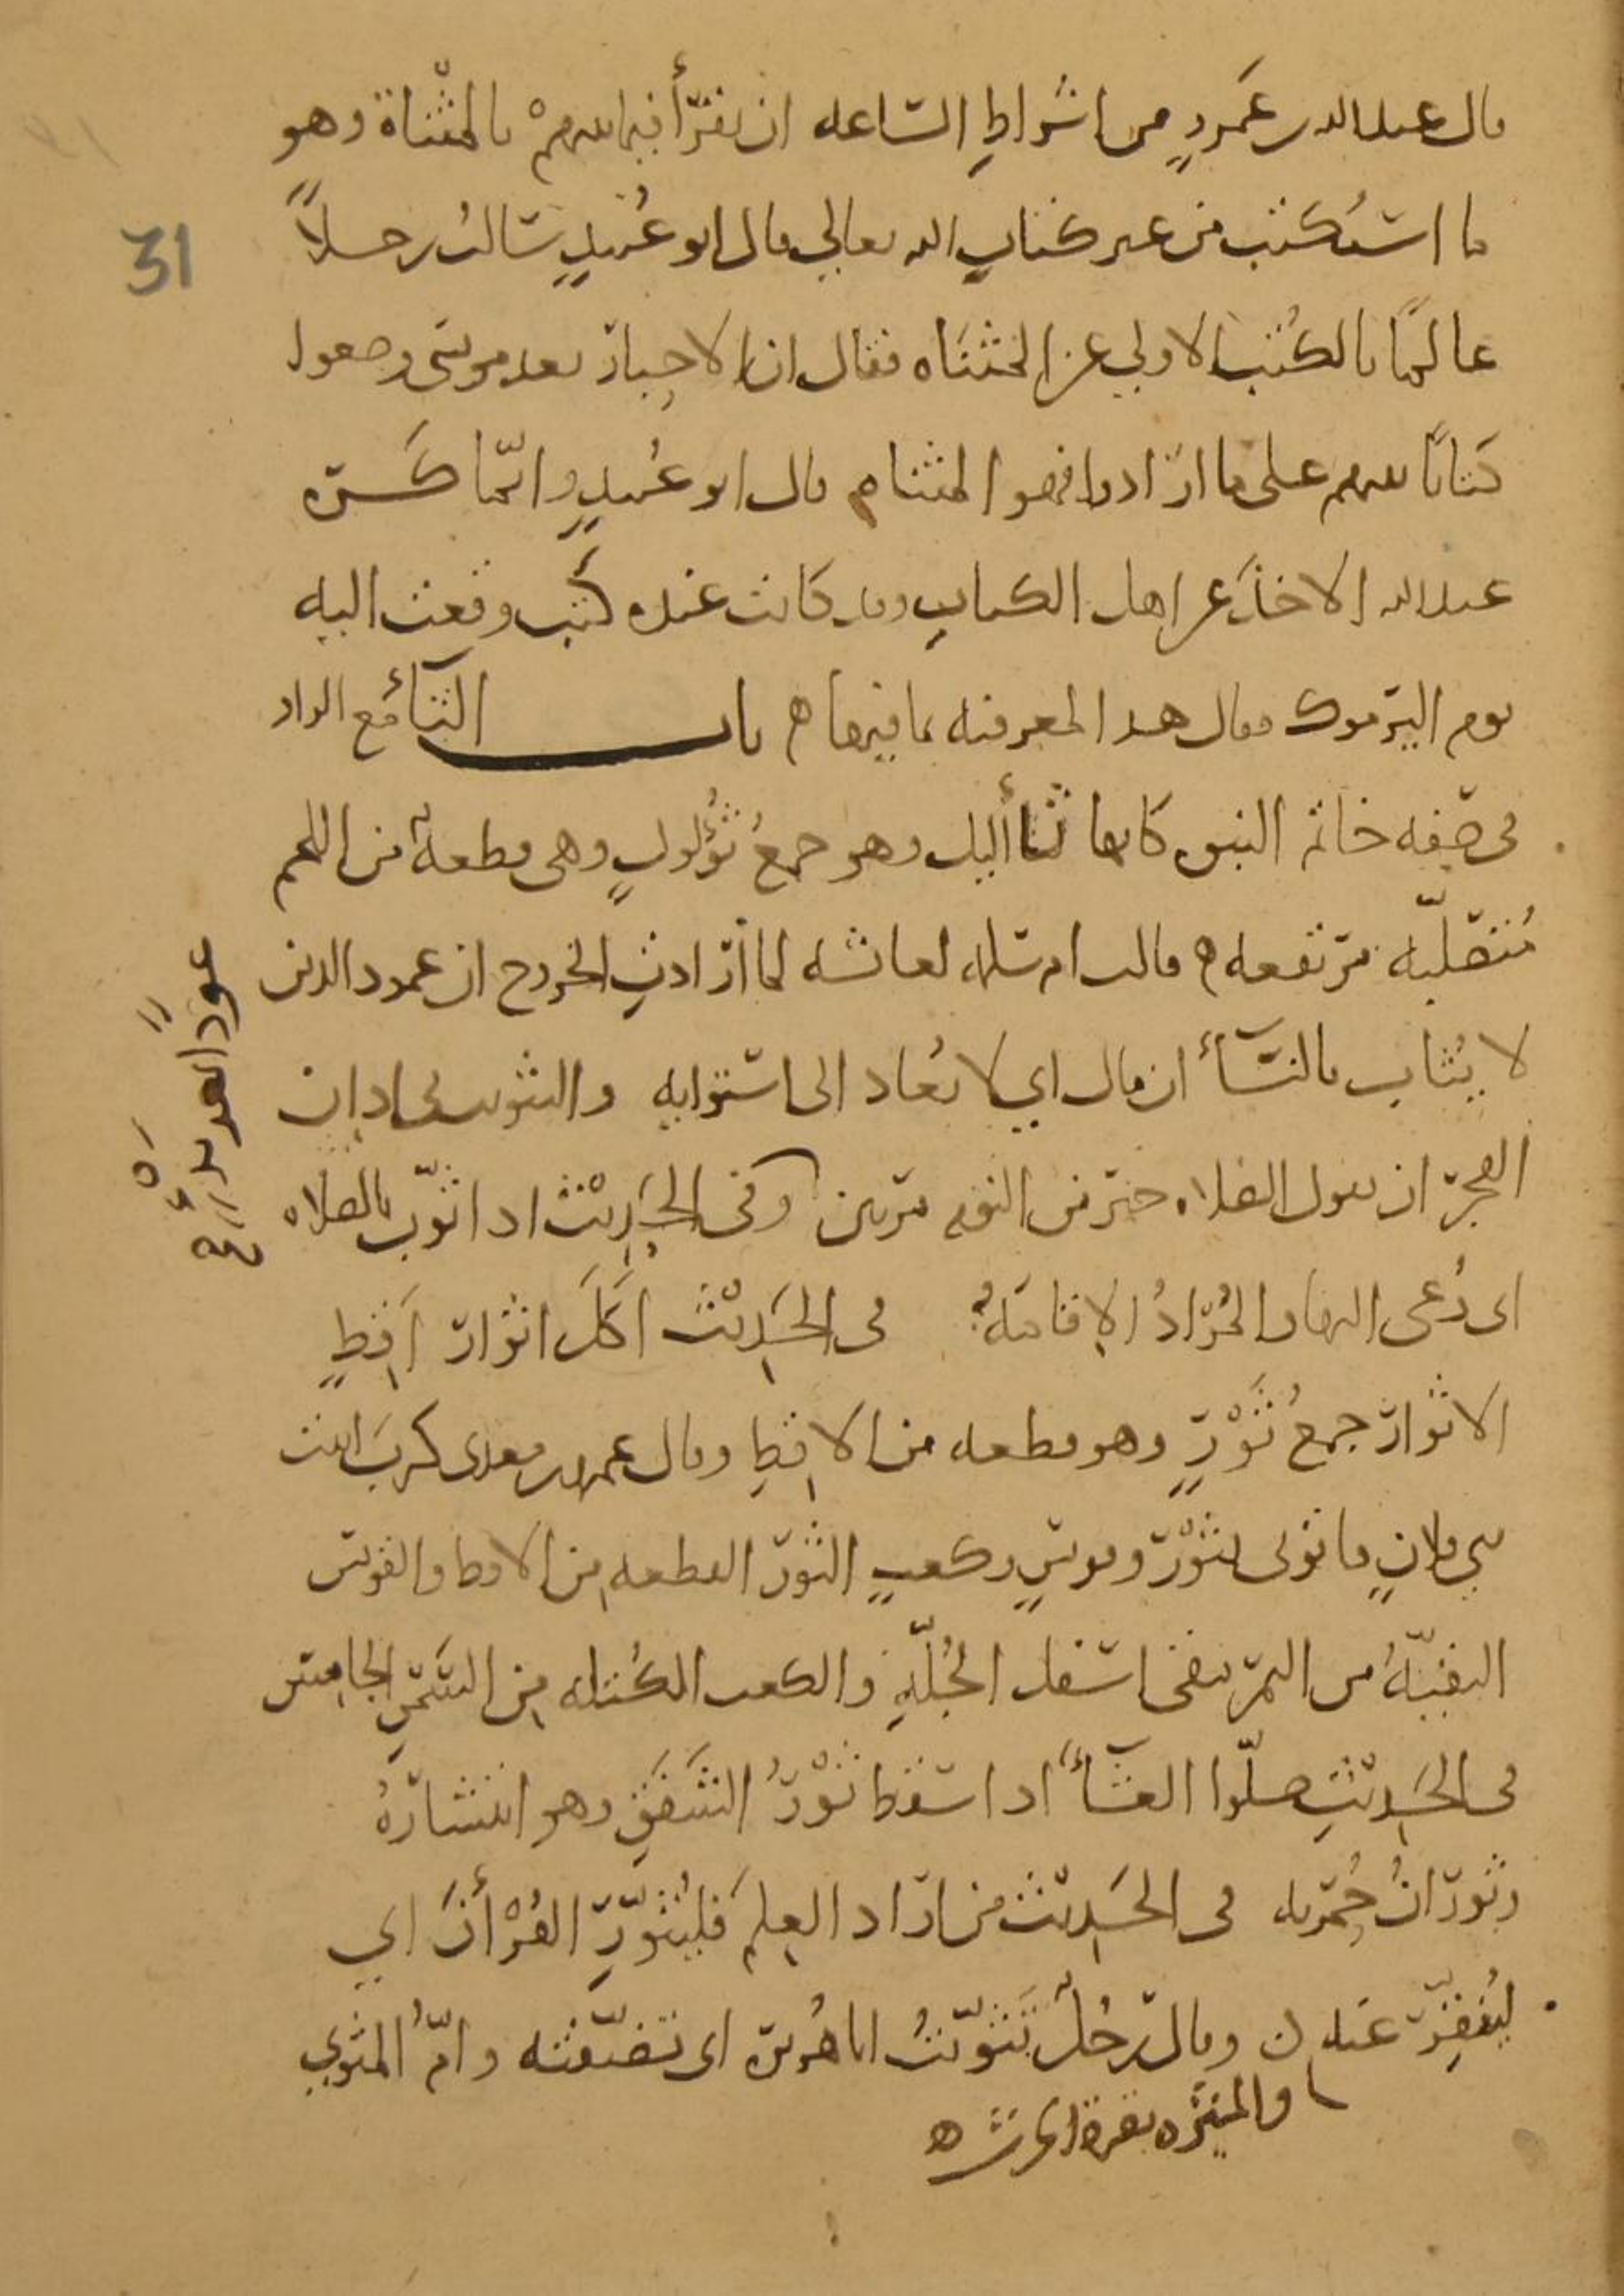 قال عبد الله بن عمرو من اشراط الساعه ان يقرأ فيما بينهم بالمثناة وهو
ما استكتب من غير كتاب الله تعالى قال ابو عبيد سالت رجلاً
31
عالمًا بالكتب الاولى عن المثناه فقال ان الاحبار بعد موسى وضعوا
كتابًا بينهم على ما ارادوا فهو المثناه قال ابو عبيد وانّما كره
عبد الله الاخذ عن اهل الكتاب وقد كانت عنده كتب وقعت اليه
يوم اليرموك فقال هذا لمعرفته بما فيها ه باب الثاء مع الواو
فى صفه خاتم النبى كانها ثأاليل وهو جمع ثؤلول وهى قطعة من اللحم
متصلّبه مرتفعه ه قالت ام سلمه لعائشه لما ارادت الخروج ان عمود الدين
لا يثاب بالنسأ ان مال اي لا يعاد الى استوايه والتثويب فى اذان
الفجر ان يقول الصلاه خير من النوم مرتين وفى الحديث اذا ثوّب بالصلاه
اى دعى اليها والمراد الاقامة فى الحديث اكل اثوار اقط
الاثوار جمع ثور وهو قطعه من الاقط وقال عمرو بن معدى كرب اتيت
بنى فلان فاتونى بثور وقوس وكعب الثور القطعه من الاقط والقوس
البقيّة من التمر تبقى اسفل الجلّة والكعب الكتله من السمن الجامس
فى الحديث صلّوا العشأ اذا سقط ثور الشفق وهو انتشاره
وثوران حمرته فى الحديث من اراد العلم فليثوّر القرأن اي
لينقّر عنه ن وقال رجل تثوّيت ابا هريره اى تضيّفته وامّ المثوى
والمثيره بقرة الحرث ه